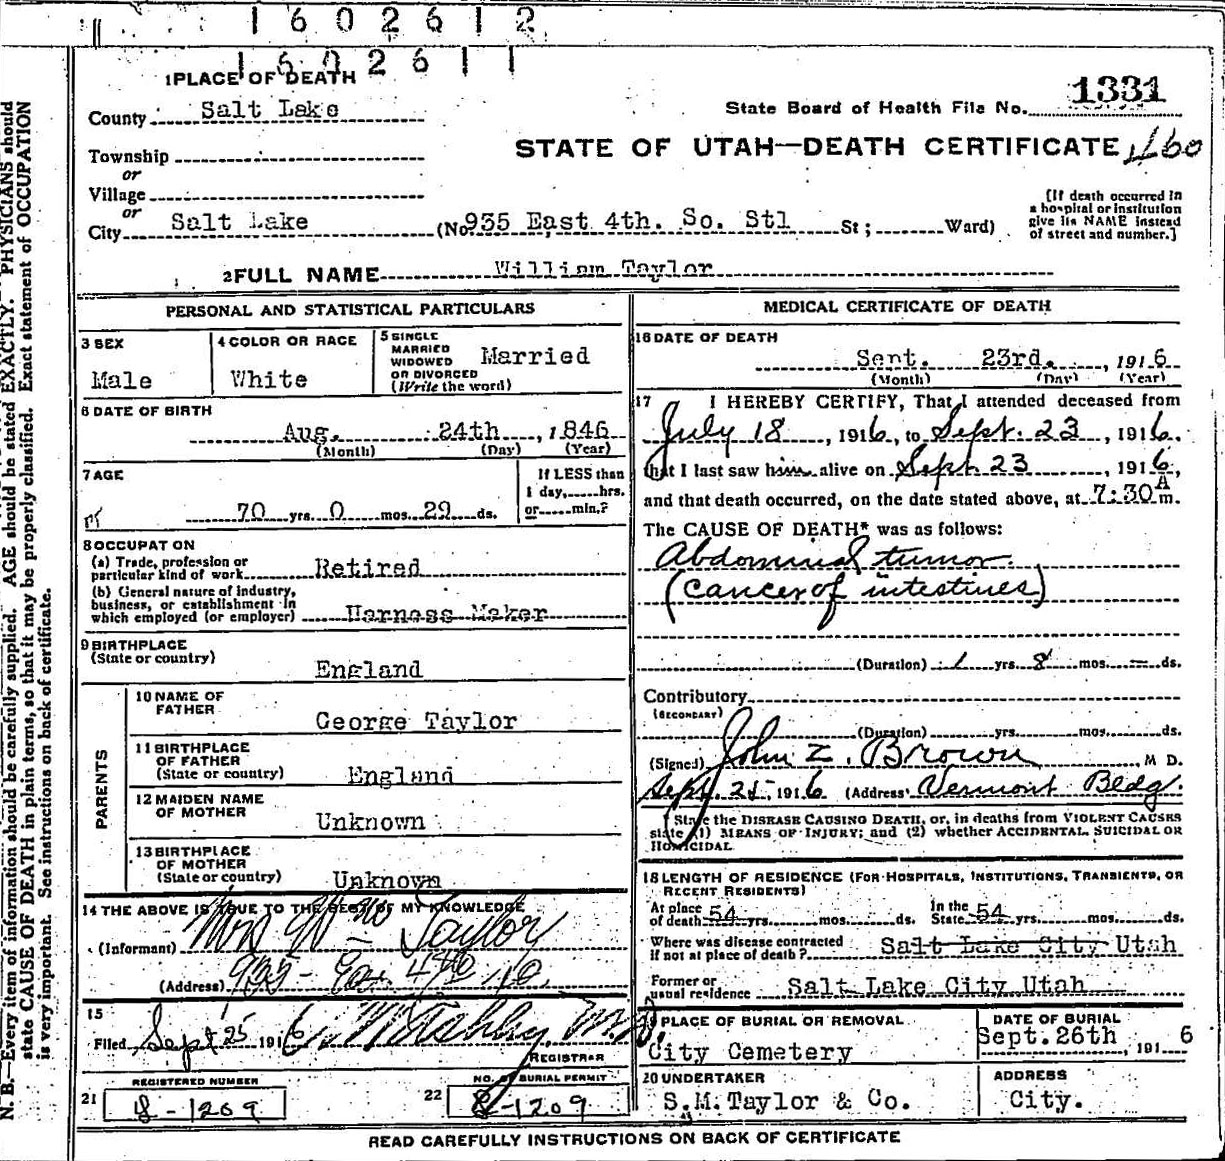 1602612
1602611
1 PLACE OF DEATH
County Salt Lake
Township
or
Village
or
City Salt Lake (No 935 East 4th. So. Stl St; Ward)
State Board of Health File No. 1331
STATE OF UTAH—DEATH CERTIFICATE
[If death occurred in
a hospital or institution
give its NAME instead
of street and number.]
2 FULL NAME William Taylor
PERSONAL AND STATISTICAL PARTICULARS
3 SEX
Male
4 COLOR OR RACE
White
5 SINGLE
MARRIED
WIDOWED
OR DIVORCED
(Write the word)
Married
6 DATE OF BIRTH
Aug. 24th, 1846
(Month) (Day) (Year)
7 AGE
70 yrs. 0 mos. 29 ds.
If LESS than
1 day, hrs.
or min.?
8 OCCUPATION
(a) Trade, profession or
particular kind of work Retired
(b) General nature of industry,
business, or establishment in
which employed (or employer) Harness Maker
9 BIRTHPLACE
(State or country)
England
PARENTS
10 NAME OF
FATHER
George Taylor
11 BIRTHPLACE
OF FATHER
(State or country) England
12 MAIDEN NAME
OF MOTHER
Unknown
13 BIRTHPLACE
OF MOTHER
(State or country) Unknown
14 THE ABOVE IS TRUE TO THE BEST OF MY KNOWLEDGE
(Informant) Mrs Wm Taylor
(Address) 935- Eas 4th So.
15
Filed Sept 25 1916 M.D.
REGISTRAR
21 REGISTERED NUMBER
8-1209
22 NO. OF BURIAL PERMIT
8-1209
MEDICAL CERTIFICATE OF DEATH
16 DATE OF DEATH
Sept. 23rd., 1916
(Month) (Day) (Year)
17 I HEREBY CERTIFY, That I attended deceased from
July 18, 1916, to Sept. 23, 1916.
that I last saw him alive on Sept. 23, 1916,
and that death occurred, on the date stated above, at 7:30 A m.
The CAUSE OF DEATH* was as follows:
Abdominal tumor.
(Cancer of intestines)
(Duration) 1 yrs. 8 mos. — ds.
Contributory
(SECONDARY)
(Duration) yrs. mos. ds.
(Signed) John Z. Brown M D.
Sept. 25, 1916 (Address) Vermont Bldg.
State the DISEASE CAUSING DEATH, or, in deaths from VIOLENT CAUSES
state (1) MEANS OF INJURY; and (2) whether ACCIDENTAL, SUICIDAL OR
HOMICIDAL
18 LENGTH OF RESIDENCE (FOR HOSPITALS, INSTITUTIONS, TRANSIENTS, OR
RECENT RESIDENTS)
At place
of death 54 yrs. mos. ds. In the State 54 yrs. mos. ds.
Where was disease contracted
if not at place of death? Salt Lake City Utah
Former or
usual residence Salt Lake City Utah
19 PLACE OF BURIAL OR REMOVAL
City Cemetery
DATE OF BURIAL
Sept. 26th, 1916
20 UNDERTAKER
S.M. Taylor & Co.
ADDRESS
City.
READ CAREFULLY INSTRUCTIONS ON BACK OF CERTIFICATE
N. B.—Every item of information should be carefully supplied. AGE should be stated EXACTLY. PHYSICIANS should
state CAUSE OF DEATH in plain terms, so that it may be properly classified. Exact statement of OCCUPATION
is very important. See instructions on back of certificate.